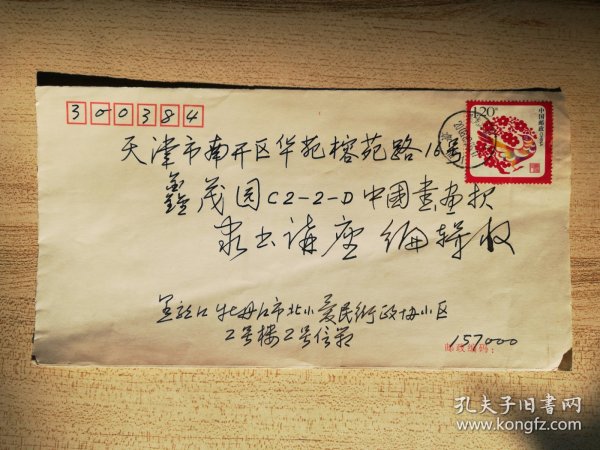 300384
120分
中国邮政
天津市南开区华苑榕苑路16号
鑫茂园C2-2-D中國書画报
隶书講座编辑收
黑龙江牡丹江市北小爱民街政协小区
2号楼2号信箱
157000
邮政编码:
孔夫子旧书网
www.kongfz.com